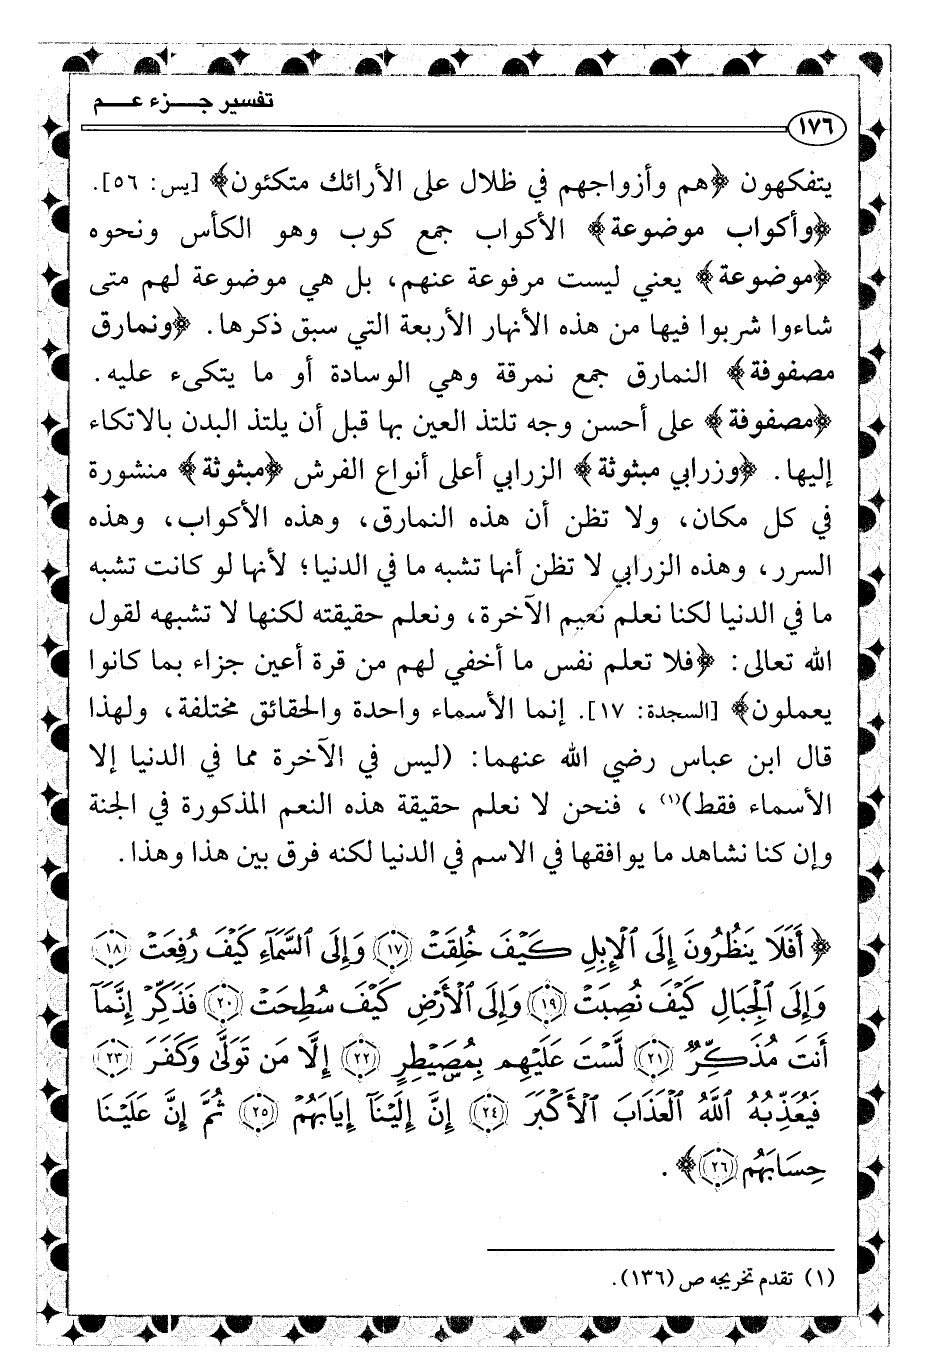 تفسير جزء عم
١٧٦
يتفكهون ﴿هم وأزواجهم في ظلال على الأرائك متكئون﴾ [يس: ٥٦].
﴿وأكواب موضوعة﴾ الأكواب جمع كوب وهو الكأس ونحوه
﴿موضوعة﴾ يعني ليست مرفوعة عنهم، بل هي موضوعة لهم متى
شاءوا شربوا فيها من هذه الأنهار الأربعة التي سبق ذكرها. ﴿ونمارق
مصفوفة﴾ النمارق جمع نمرقة وهي الوسادة أو ما يتكىء عليه.
﴿مصفوفة﴾ على أحسن وجه تلتذ العين بها قبل أن يلتذ البدن بالاتكاء
إليها. ﴿وزرابي مبثوثة﴾ الزرابي أعلى أنواع الفرش ﴿مبثوثة﴾ منشورة
في كل مكان، ولا تظن أن هذه النمارق، وهذه الأكواب، وهذه
السرر، وهذه الزرابي لا تظن أنها تشبه ما في الدنيا؛ لأنها لو كانت تشبه
ما في الدنيا لكنا نعلم نعيم الآخرة، ونعلم حقيقته لكنها لا تشبهه لقول
الله تعالى: ﴿فلا تعلم نفس ما أخفي لهم من قرة أعين جزاء بما كانوا
يعملون﴾ [السجدة: ١٧]. إنما الأسماء واحدة والحقائق مختلفة، ولهذا
قال ابن عباس رضي الله عنهما: (ليس في الآخرة مما في الدنيا إلا
الأسماء فقط)(١) ، فنحن لا نعلم حقيقة هذه النعم المذكورة في الجنة
وإن كنا نشاهد ما يوافقها في الاسم في الدنيا لكنه فرق بين هذا وهذا.
﴿أَفَلَا يَنظُرُونَ إِلَى ٱلْإِبِلِ كَيْفَ خُلِقَتْ ١٧ وَإِلَى ٱلسَّمَآءِ كَيْفَ رُفِعَتْ ١٨
وَإِلَى ٱلْجِبَالِ كَيْفَ نُصِبَتْ ١٩ وَإِلَى ٱلْأَرْضِ كَيْفَ سُطِحَتْ ٢٠ فَذَكِّرْ إِنَّمَآ
أَنتَ مُذَكِّرٌ ٢١ لَّسْتَ عَلَيْهِم بِمُصَيْطِرٍ ٢٢ إِلَّا مَن تَوَلَّىٰ وَكَفَرَ ٢٣
فَيُعَذِّبُهُ ٱللَّهُ ٱلْعَذَابَ ٱلْأَكْبَرَ ٢٤ إِنَّ إِلَيْنَآ إِيَابَهُمْ ٢٥ ثُمَّ إِنَّ عَلَيْنَا
حِسَابَهُم ٢٦﴾.
(١) تقدم تخريجه ص (١٣٦).